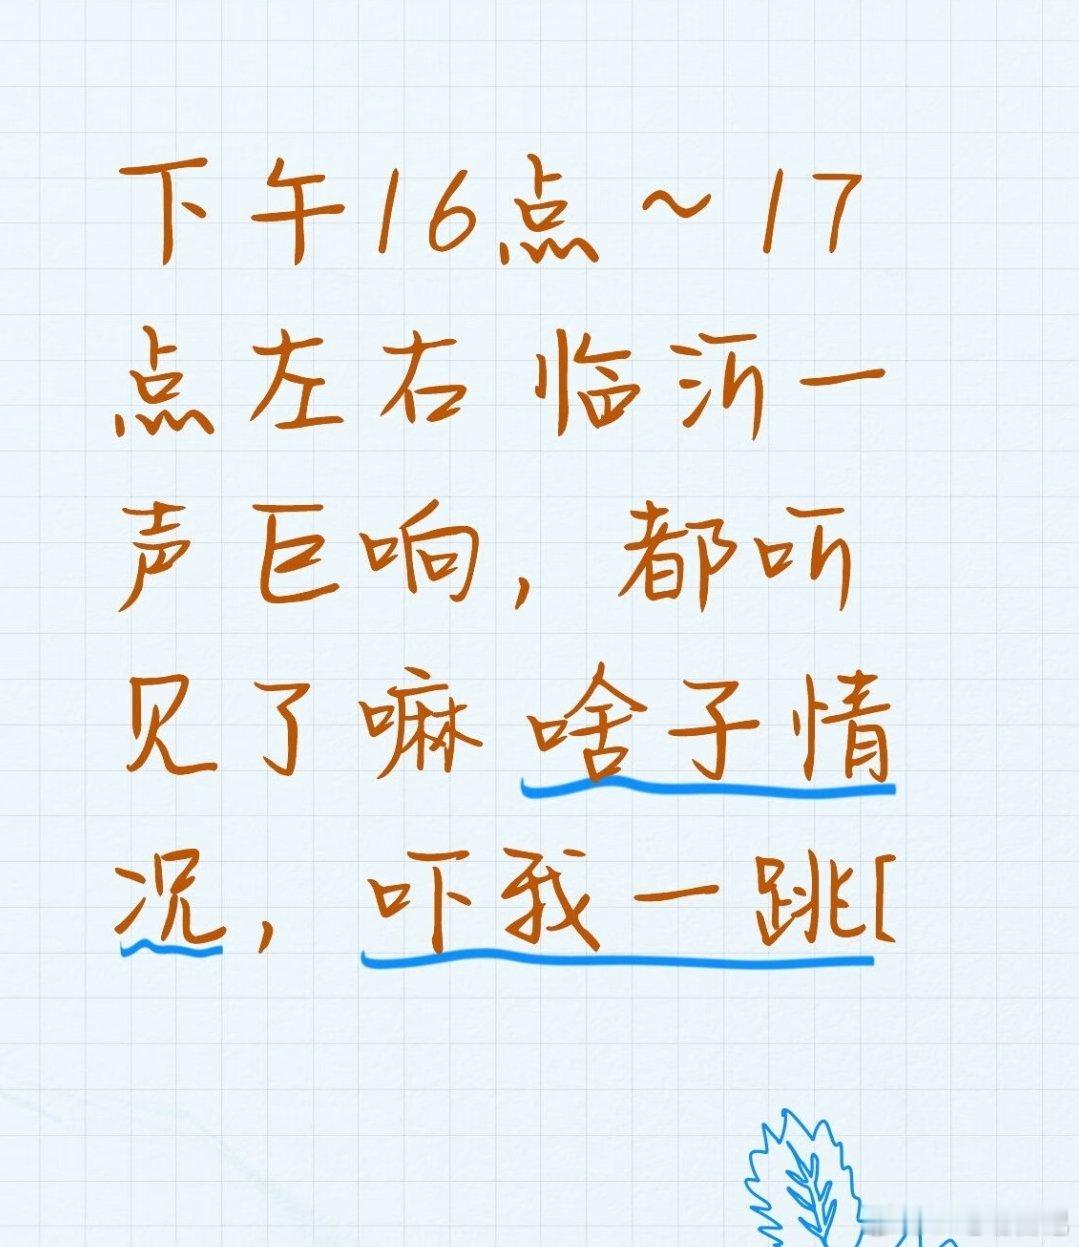 下午16点~17
点左右 临沂一
声巨响,都听
见了嘛 啥子情
况,吓我一跳[